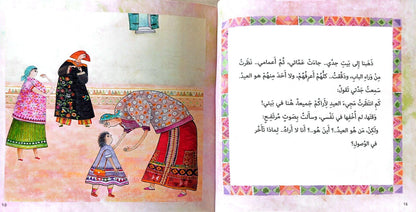 ذَهَبنا إِلى بَيتِ جَدّي. جاءَت عَمّاتي، ثُمَّ أَعمامي.. نَظَرتُ
مِن وَراءِ البابِ، ودَقَّقتُ.. كُلُّهُم أَعرِفُهُم، ولا أَحَدَ مِنهُم هو العيدُ.
سَمِعتُ جَدَّتي تَقولُ:
كَم انتَظَرتُ مَجيءَ العيدِ لِأَراكُم جَميعاً، هُنا في بَيتي!
وَقَفتُ، ثُمَّ في نَفسي، وسَأَلتُ بِصَوتٍ مُرتَفِعٍ:
ولكِن، مَن هُو العيدُ..؟ أَينَ هُوَ..؟ أَنا لا أَراهُ.. لِماذا تَأَخَّرَ
في الوُصولِ؟